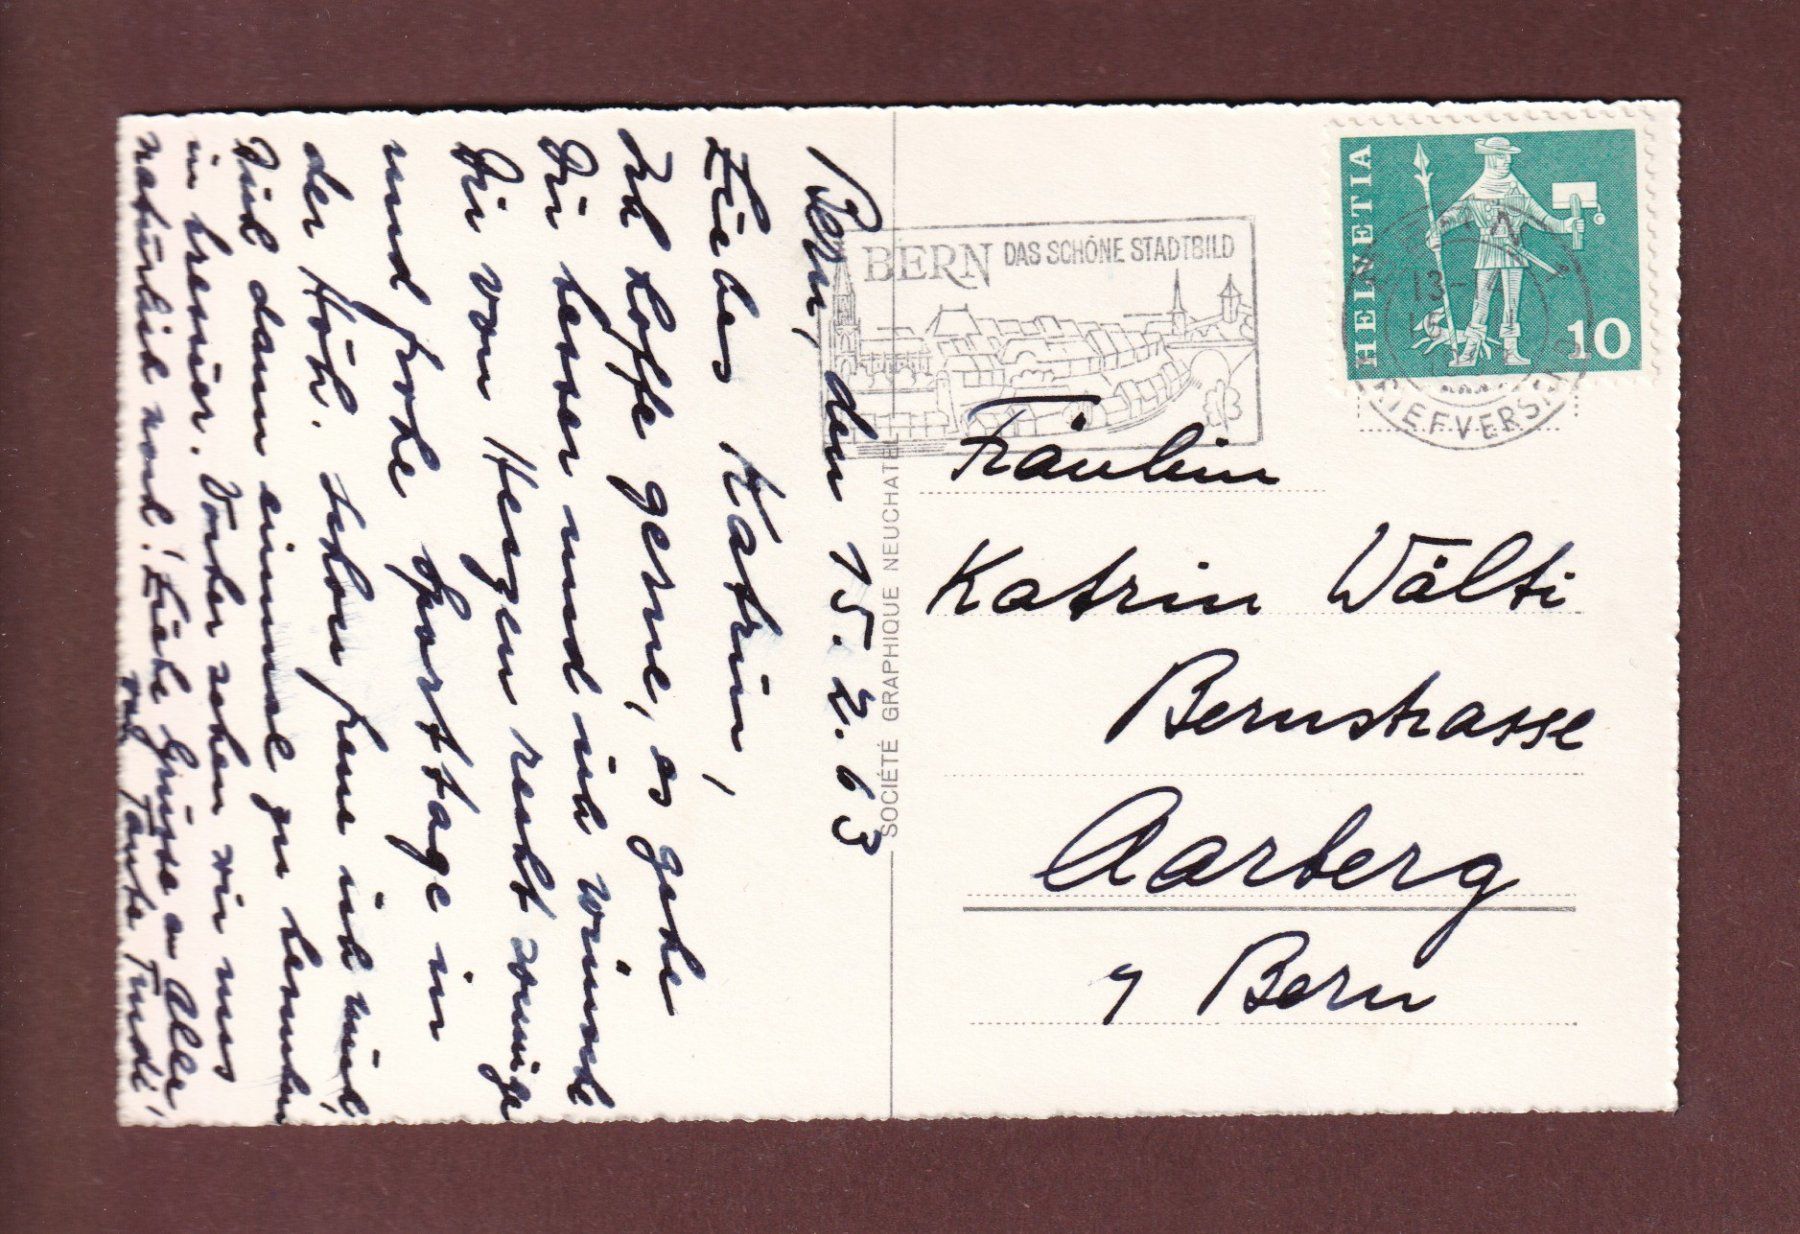 Bern, den 15. 2. 63
Liebes Katrin,
Ich hoffe gerne, es gehe
Dir besser und ich wünsche
Dir von Herzen recht sonnige
und frohe Sporttage in
der Höh. Schon freue ich mich
Dich dann einmal zu
in Bremier. Vorher sehen wir uns
natürlich noch! Liebe Grüsse an Alle
Tante Trudi
SOCIÉTÉ GRAPHIQUE NEUCHATEL
BERN DAS SCHÖNE STADTBILD
HELVETIA
10
13-
BRIEFVERSAND
Fräulein
Katrin Wälti
Bernstrasse
Aarberg
Bern